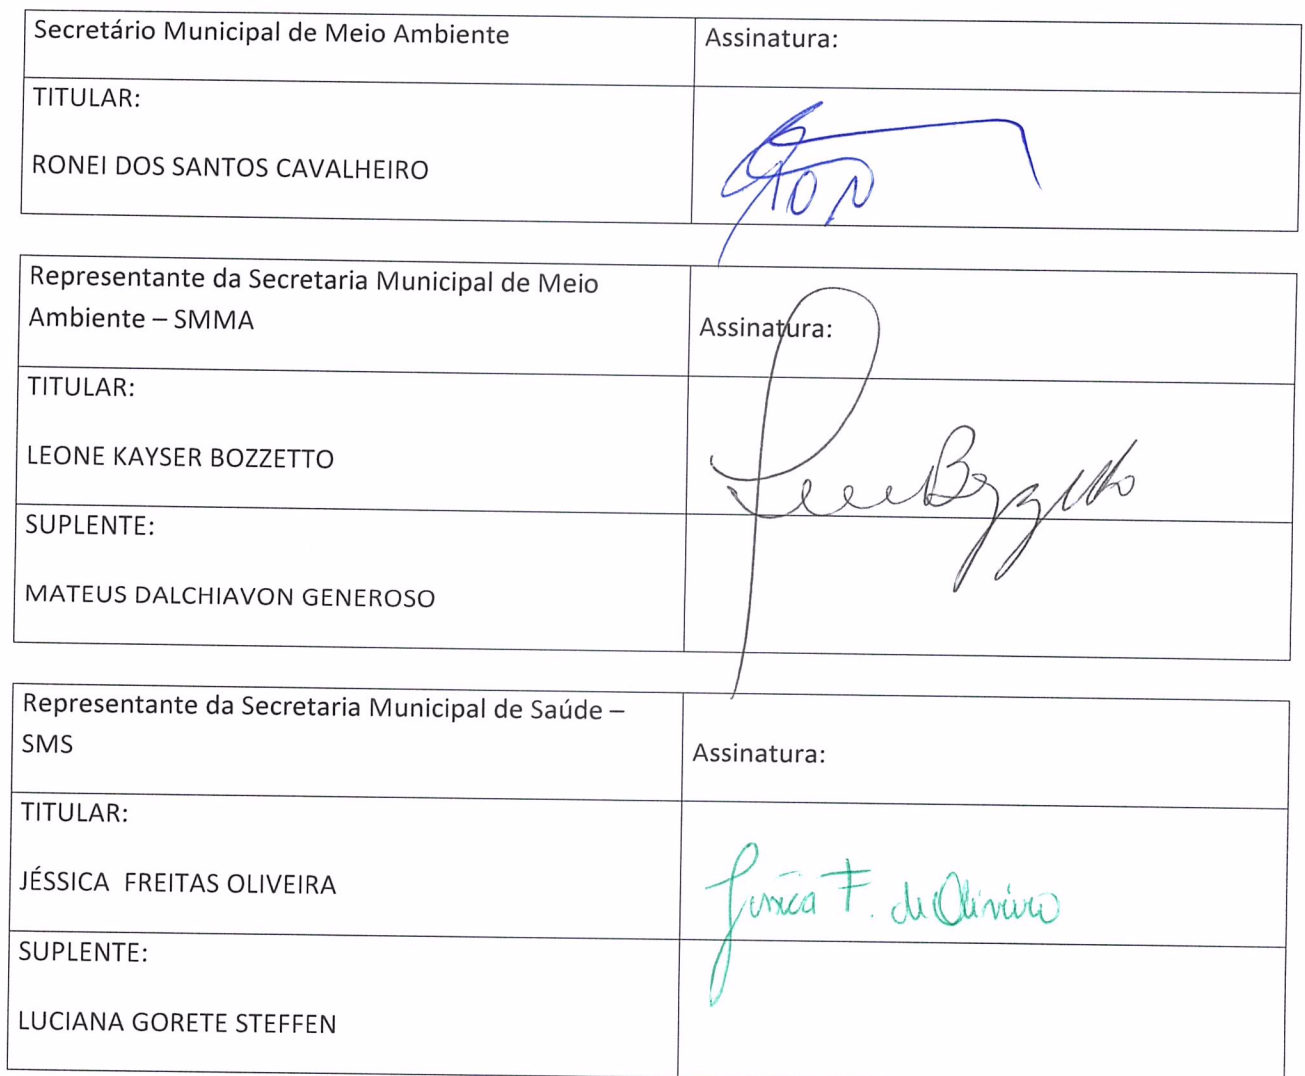 Secretário Municipal de Meio Ambiente
Assinatura:
TITULAR:
RONEI DOS SANTOS CAVALHEIRO
Representante da Secretaria Municipal de Meio
Ambiente – SMMA
Assinatura:
TITULAR:
LEONE KAYSER BOZZETTO
Bozzetto
SUPLENTE:
MATEUS DALCHIAVON GENEROSO
Representante da Secretaria Municipal de Saúde –
SMS
Assinatura:
TITULAR:
JÉSSICA FREITAS OLIVEIRA
Jéssica F. de Oliveira
SUPLENTE:
LUCIANA GORETE STEFFEN